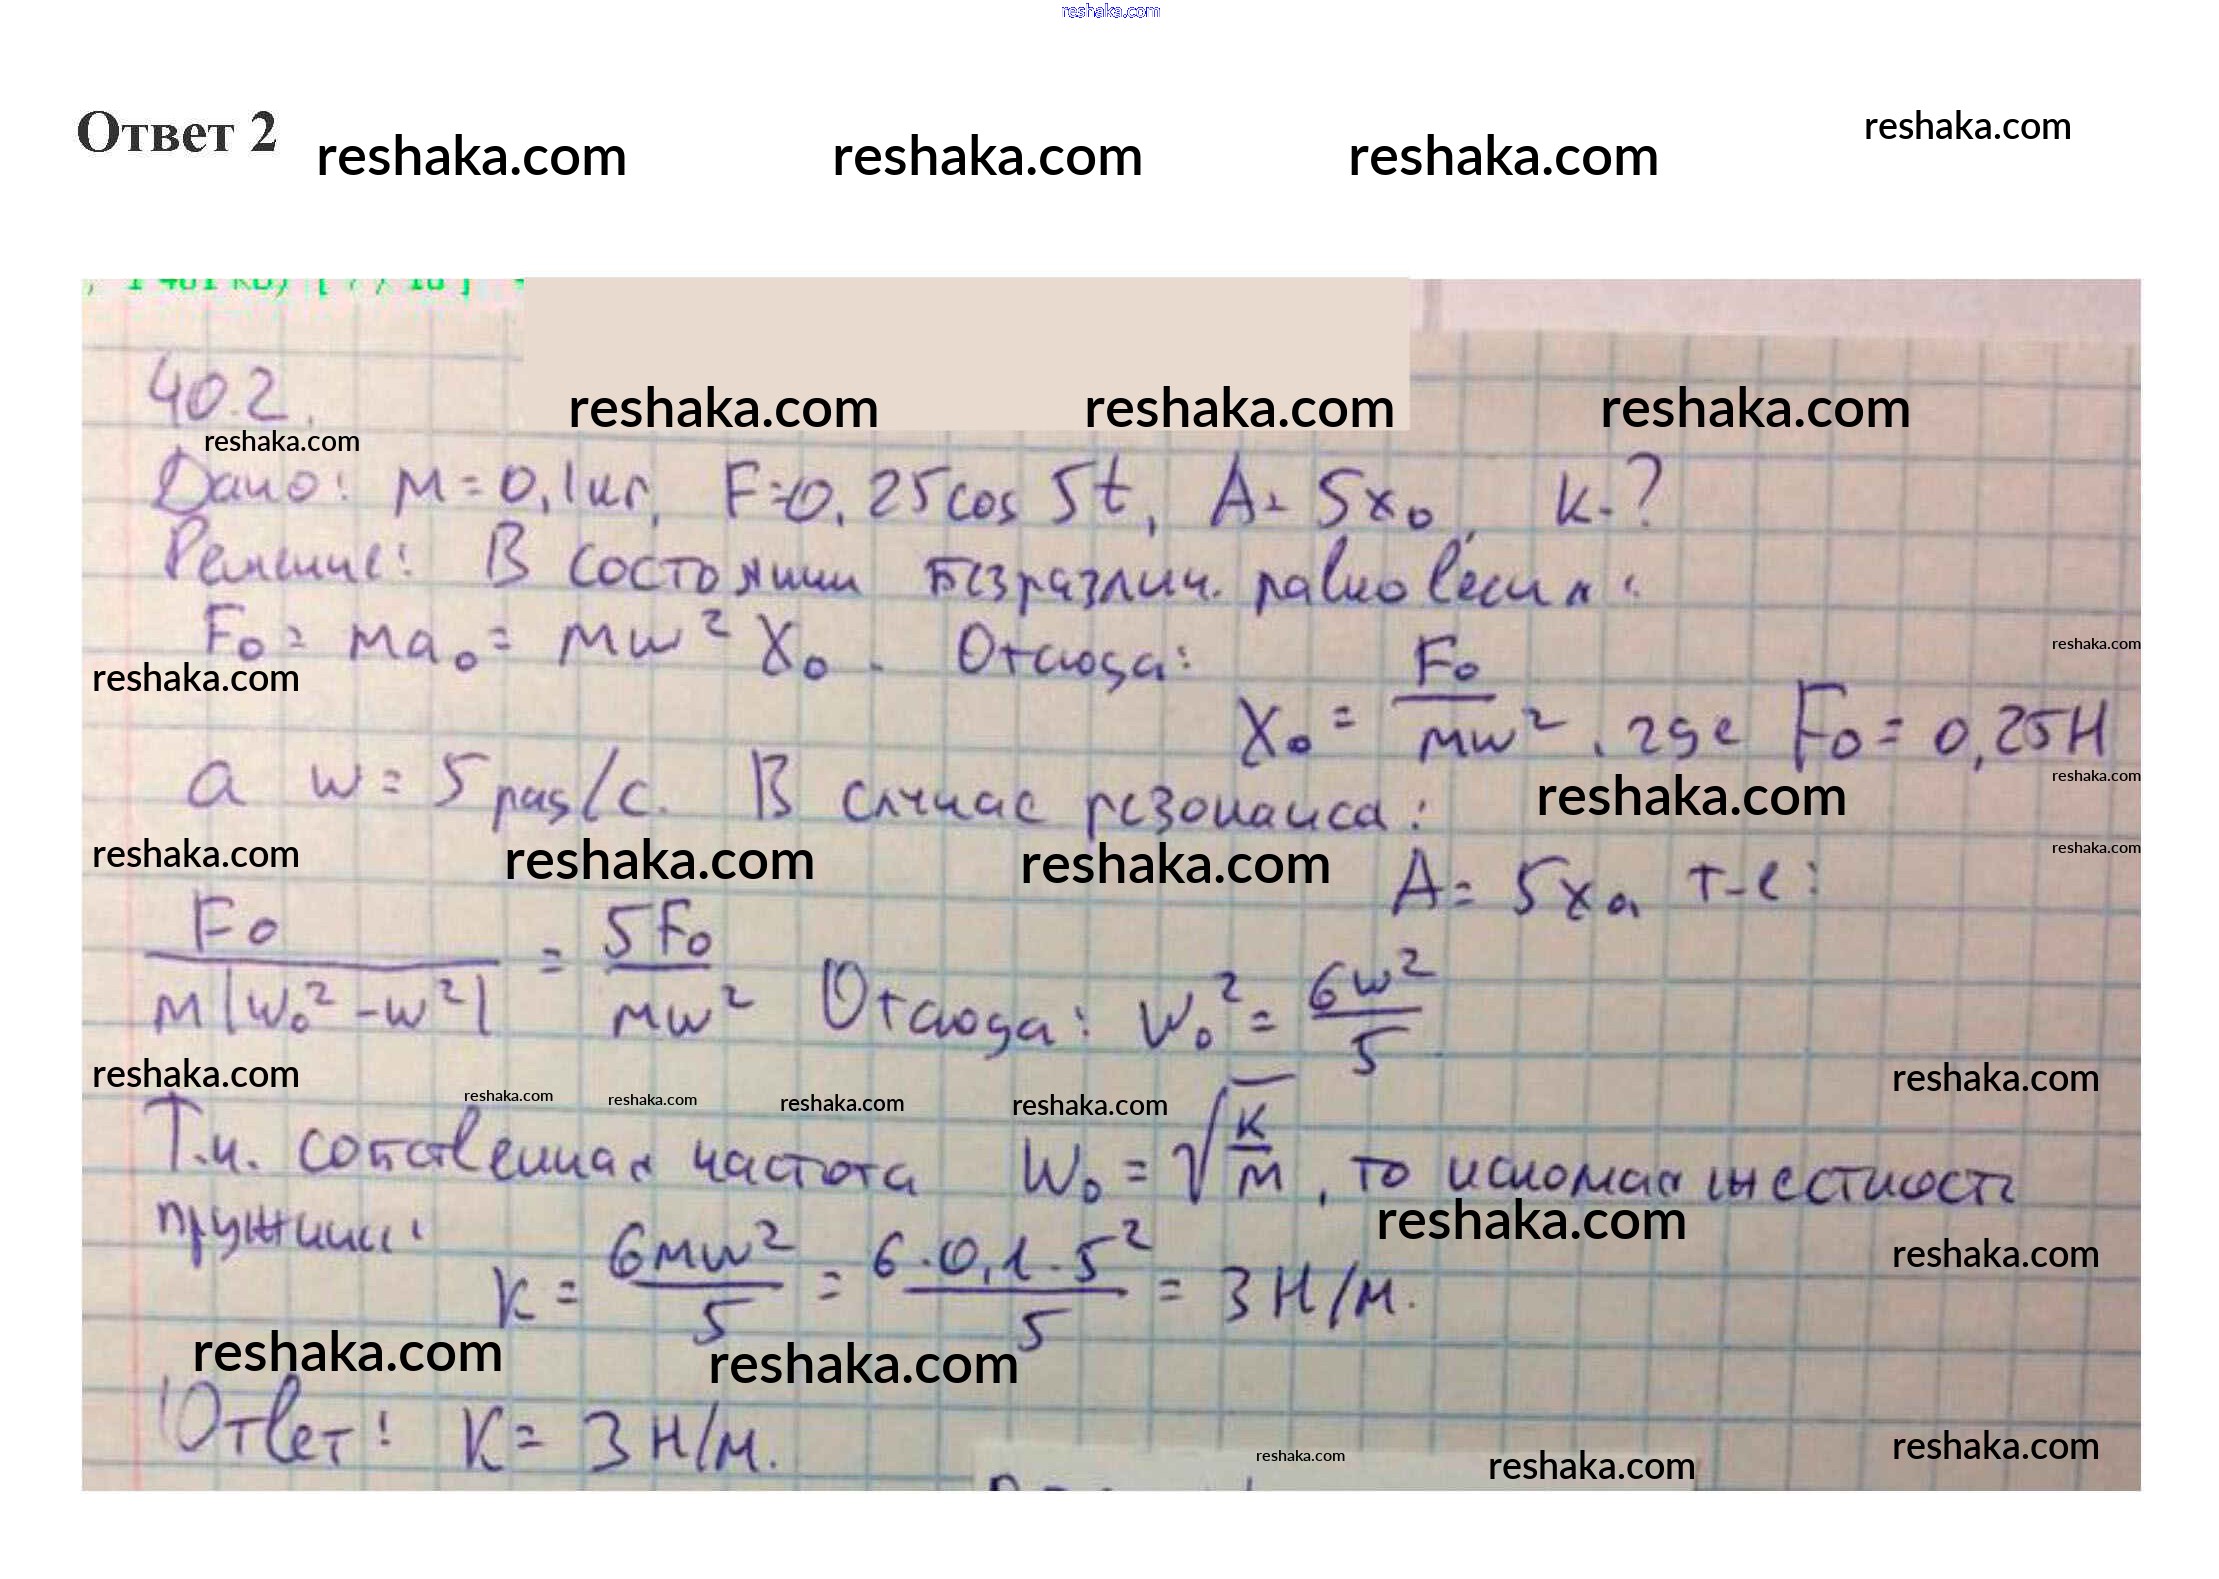 reshaka.com
Ответ 2
reshaka.com reshaka.com reshaka.com reshaka.com
40.2.
reshaka.com reshaka.com reshaka.com
reshaka.com
Дано: m = 0,1 кг, F = 0,25 cos 5t, A = 5x₀, k - ?
Решение: В состоянии безразлич. равновесия:
F₀ = ma₀ = mw² x₀. Отсюда:
reshaka.com
reshaka.com
x₀ = F₀/mw², где F₀ = 0,25 Н
reshaka.com
а w = 5 рад/с. В случае резонанса:
reshaka.com
reshaka.com reshaka.com reshaka.com reshaka.com
A = 5x₀, т-е:
F₀/m|w₀² - w²| = 5F₀/mw² Отсюда: w₀² = 6w²/5
reshaka.com reshaka.com
reshaka.com reshaka.com reshaka.com reshaka.com
Т.к. собственная частота w₀ = √k/m, то искомая жесткость
reshaka.com
пружины:
reshaka.com
k = 6mw²/5 = 6·0,1·5²/5 = 3 Н/м.
reshaka.com reshaka.com
Ответ: k = 3 Н/м.
reshaka.com reshaka.com reshaka.com